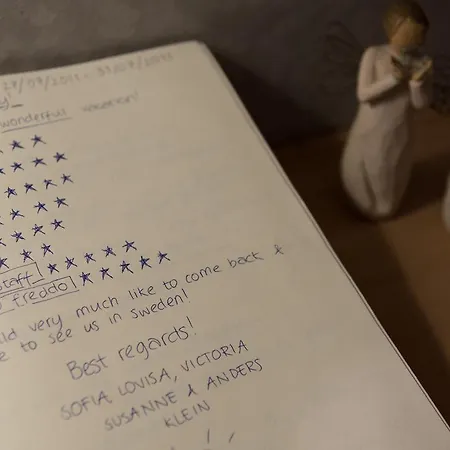 wonderful vacation!
Staff
freddo
very much like to come back &
to see us in Sweden!
Best regards!
SOFIA, LOVISA, VICTORIA
SUSANNE & ANDERS
KLEIN